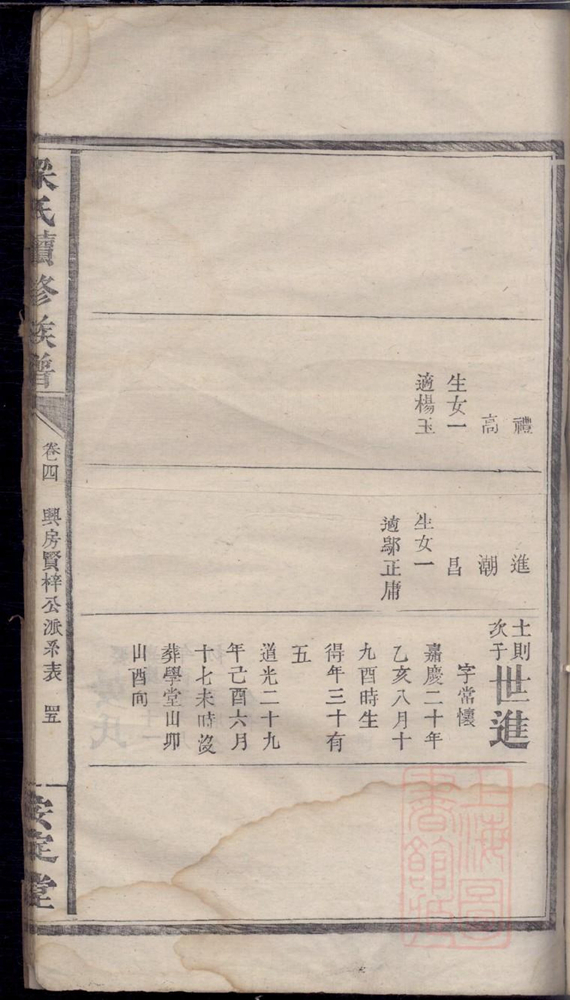 禮
高
生女一
適楊玉
進
潮
昌
生女一
適鄔正庸
士則
次子
世進
字常懷
嘉慶二十年
乙亥八月十
九酉時生
得年三十有
五
道光二十九
年己酉六月
十七未時沒
葬學堂山卯
山酉向
梁氏續修族譜
卷四
興房賢梓公派系表
安定堂
上海圖
書館藏